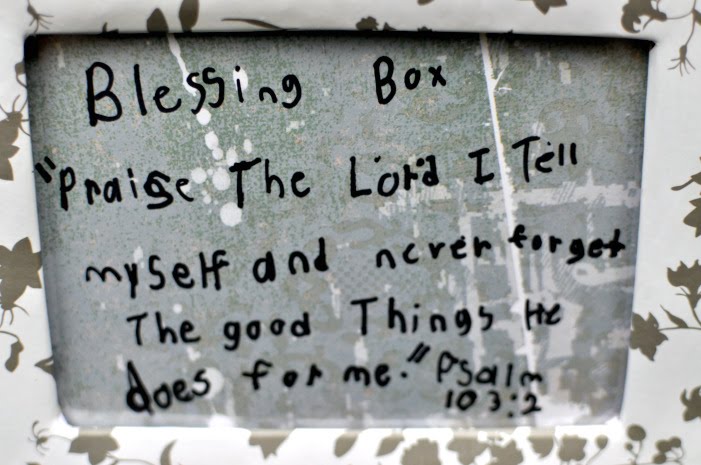 Blessing Box
"Praise The Lord I Tell
myself and never forget
The good Things He
does for me." Psalm
103:2